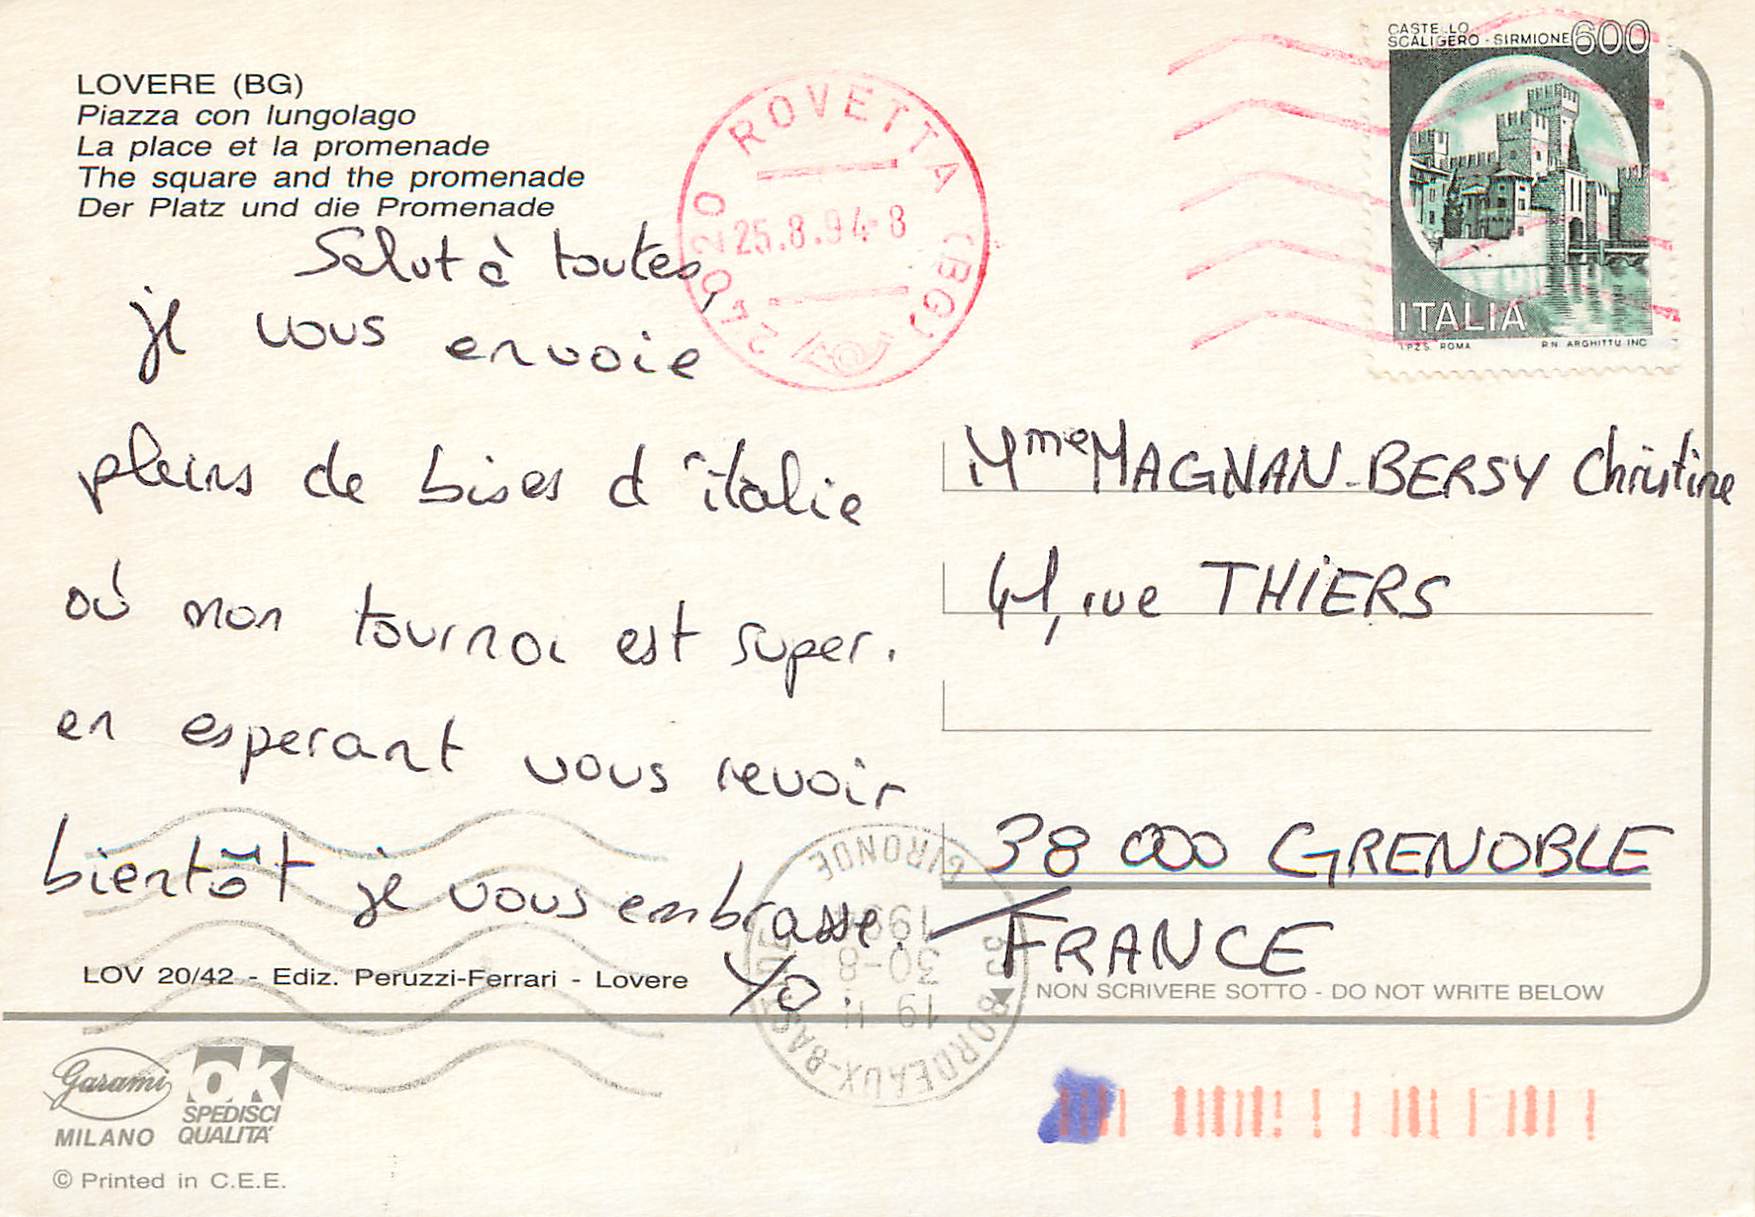 LOVERE (BG)
Piazza con lungolago
La place et la promenade
The square and the promenade
Der Platz und die Promenade
Salut à toutes,
je vous envoie
pleins de bises d'italie
où mon tournoi est super.
en esperant vous revoir
bientôt je vous embrasse.
Yo.
LOV 20/42 - Ediz. Peruzzi-Ferrari - Lovere
Garami
MILANO
OK
SPEDISCI
QUALITA'
© Printed in C.E.E.
24020 ROVETTA (BG)
25.8.94-8
CASTELLO
SCALIGERO - SIRMIONE
600
ITALIA
I.P.Z.S. ROMA
P.N. ARGHITTU INC
Mme MAGNAN-BERSY Christine
41, rue THIERS
38 000 GRENOBLE
FRANCE
NON SCRIVERE SOTTO - DO NOT WRITE BELOW
GIRONDE
19 H
30-8
33 BORDEAUX-BASTIDE